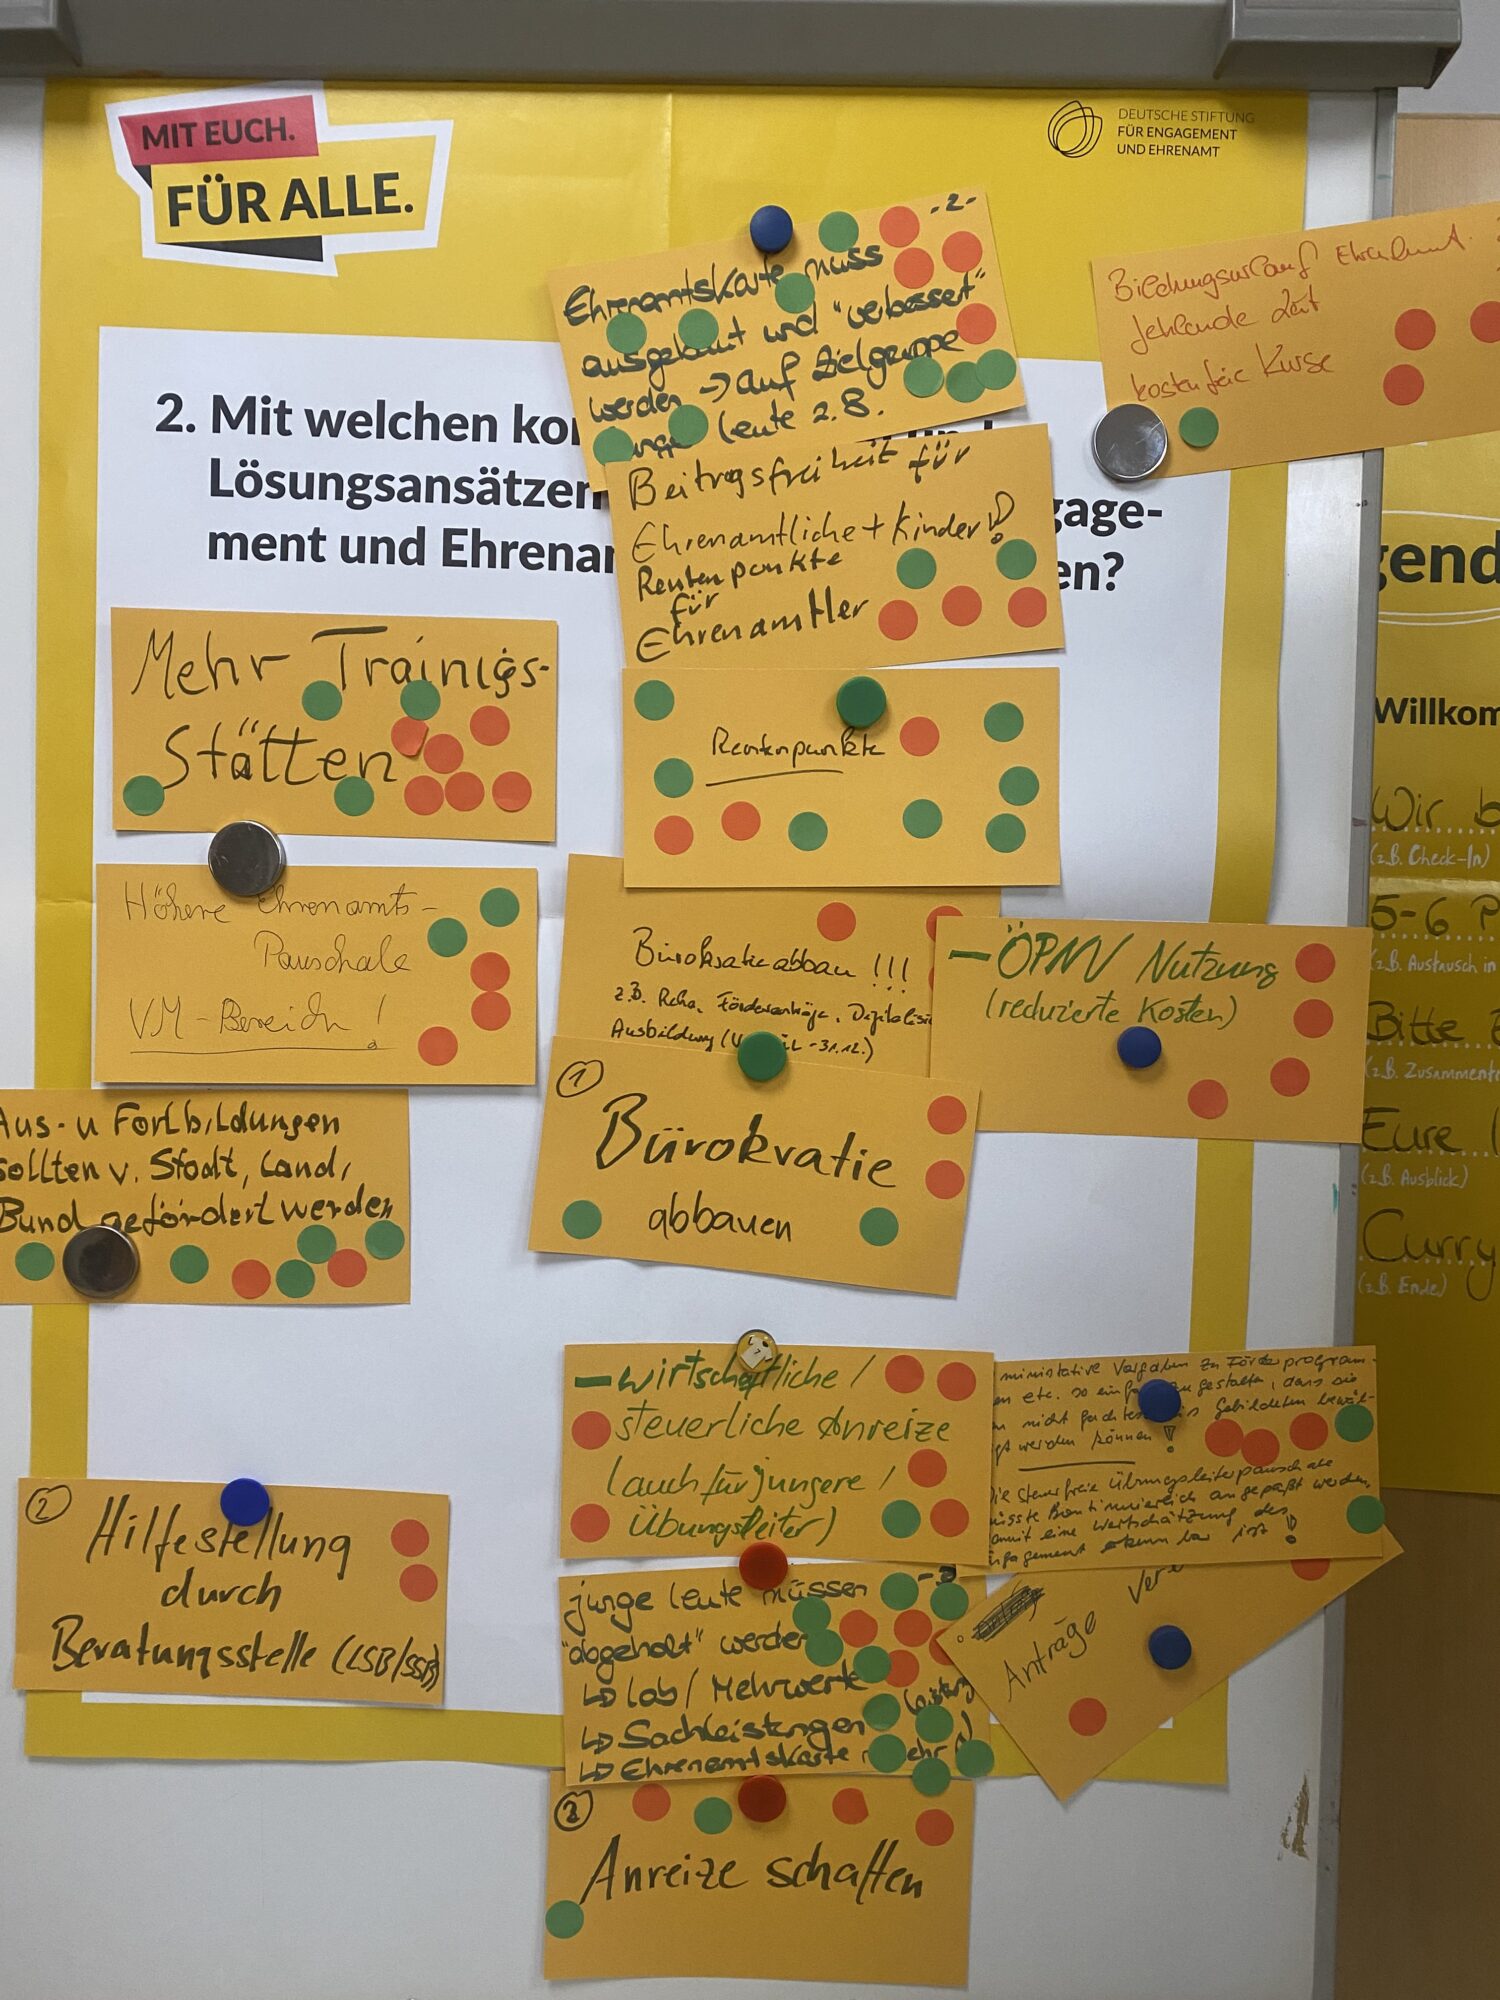 MIT EUCH.
FÜR ALLE.
DEUTSCHE STIFTUNG
FÜR ENGAGEMENT
UND EHRENAMT
-2-
Ehrenamtskarte muss
ausgebaut und "verbessert"
werden → auf Zielgruppe
junge leute z.B.
Bildungsurlaub Ehrenamt
fehlende Zeit
kostenfreie Kurse
2. Mit welchen
Lösungsansätzen
gage-
ment und
en?
Beitragsfreiheit für
Ehrenamtliche + Kinder!
Rentenpunkte
für
Ehrenamtler
Mehr Trainings-
Stätten
Rentenpunkte
Höhere Ehrenamts-
Pauschale
VM-Bereich!
Bürokratieabbau!!!
z.B. Reha, Förderanträge, Digitalisi
Ausbildung ( -31.12.)
- ÖPNV Nutzung
(reduzierte Kosten)
1
Bürokratie
abbauen
Aus- u Fortbildungen
sollten v. Stadt, Land,
Bund gefördert werden
- wirtschaftliche /
steuerliche Anreize
(auch für jüngere /
Übungsleiter)
ministrative Vorgaben zu Förderprogram-
en etc. so einfach zu gestalten, dass sie
nicht gebildeten bewäl-
gt werden können!
die steuerfreie Übungsleiterpauschale
müsste kontinuierlich angepaßt werden,
damit eine Wertschätzung des
Engagement erkennbar ist!
2
Hilfestellung
durch
Beratungsstelle (LSB/SSB)
junge leute müssen
"abgeholt" werden
↳ lob / Mehrwerte
↳ Sachleistungen
↳ Ehrenamtskarte
Anträge
Anreize schaffen
gend
Willkom
Wir b
(z.B. Check-In)
5-6 P
(z.B. Austausch in
Bitte
(z.B. Zusammenf
Eure
(z.B. Ausblick)
Curry
(z.B. Ende)